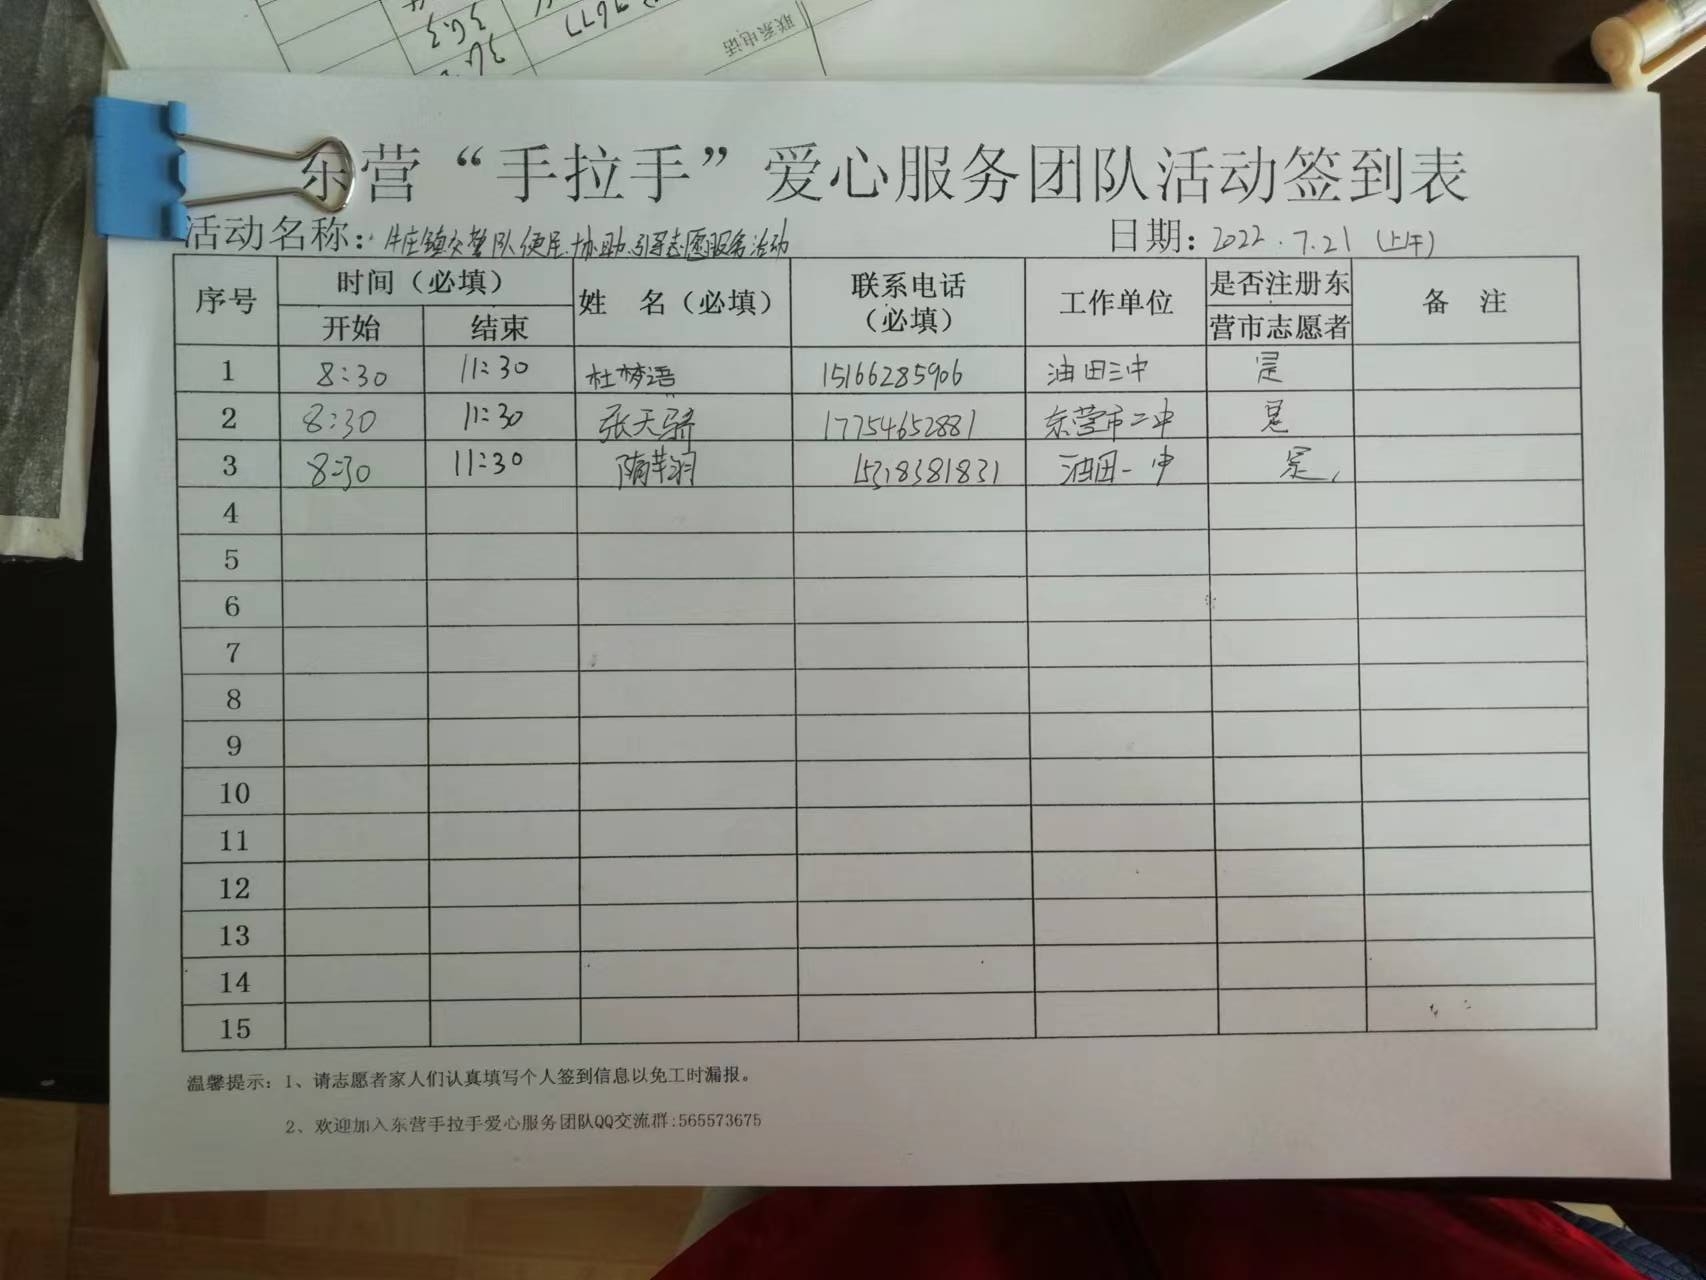 联系电话
东营“手拉手”爱心服务团队活动签到表
活动名称：牛庄镇交警队便民.协助.引导志愿服务活动 日期：2022.7.21（上午）
序号 时间（必填） 姓 名（必填） 联系电话（必填） 工作单位 是否注册东营市志愿者 备 注
开始 结束
1 8:30 11:30 杜梦语 15166285906 油田三中 是
2 8:30 11:30 张天骄 17754652881 东营市二中 是
3 8:30 11:30 隋 15318381831 油田一中 是
4
5
6
7
8
9
10
11
12
13
14
15
温馨提示：1、请志愿者家人们认真填写个人签到信息以免工时漏报。
2、欢迎加入东营手拉手爱心服务团队QQ交流群:565573675